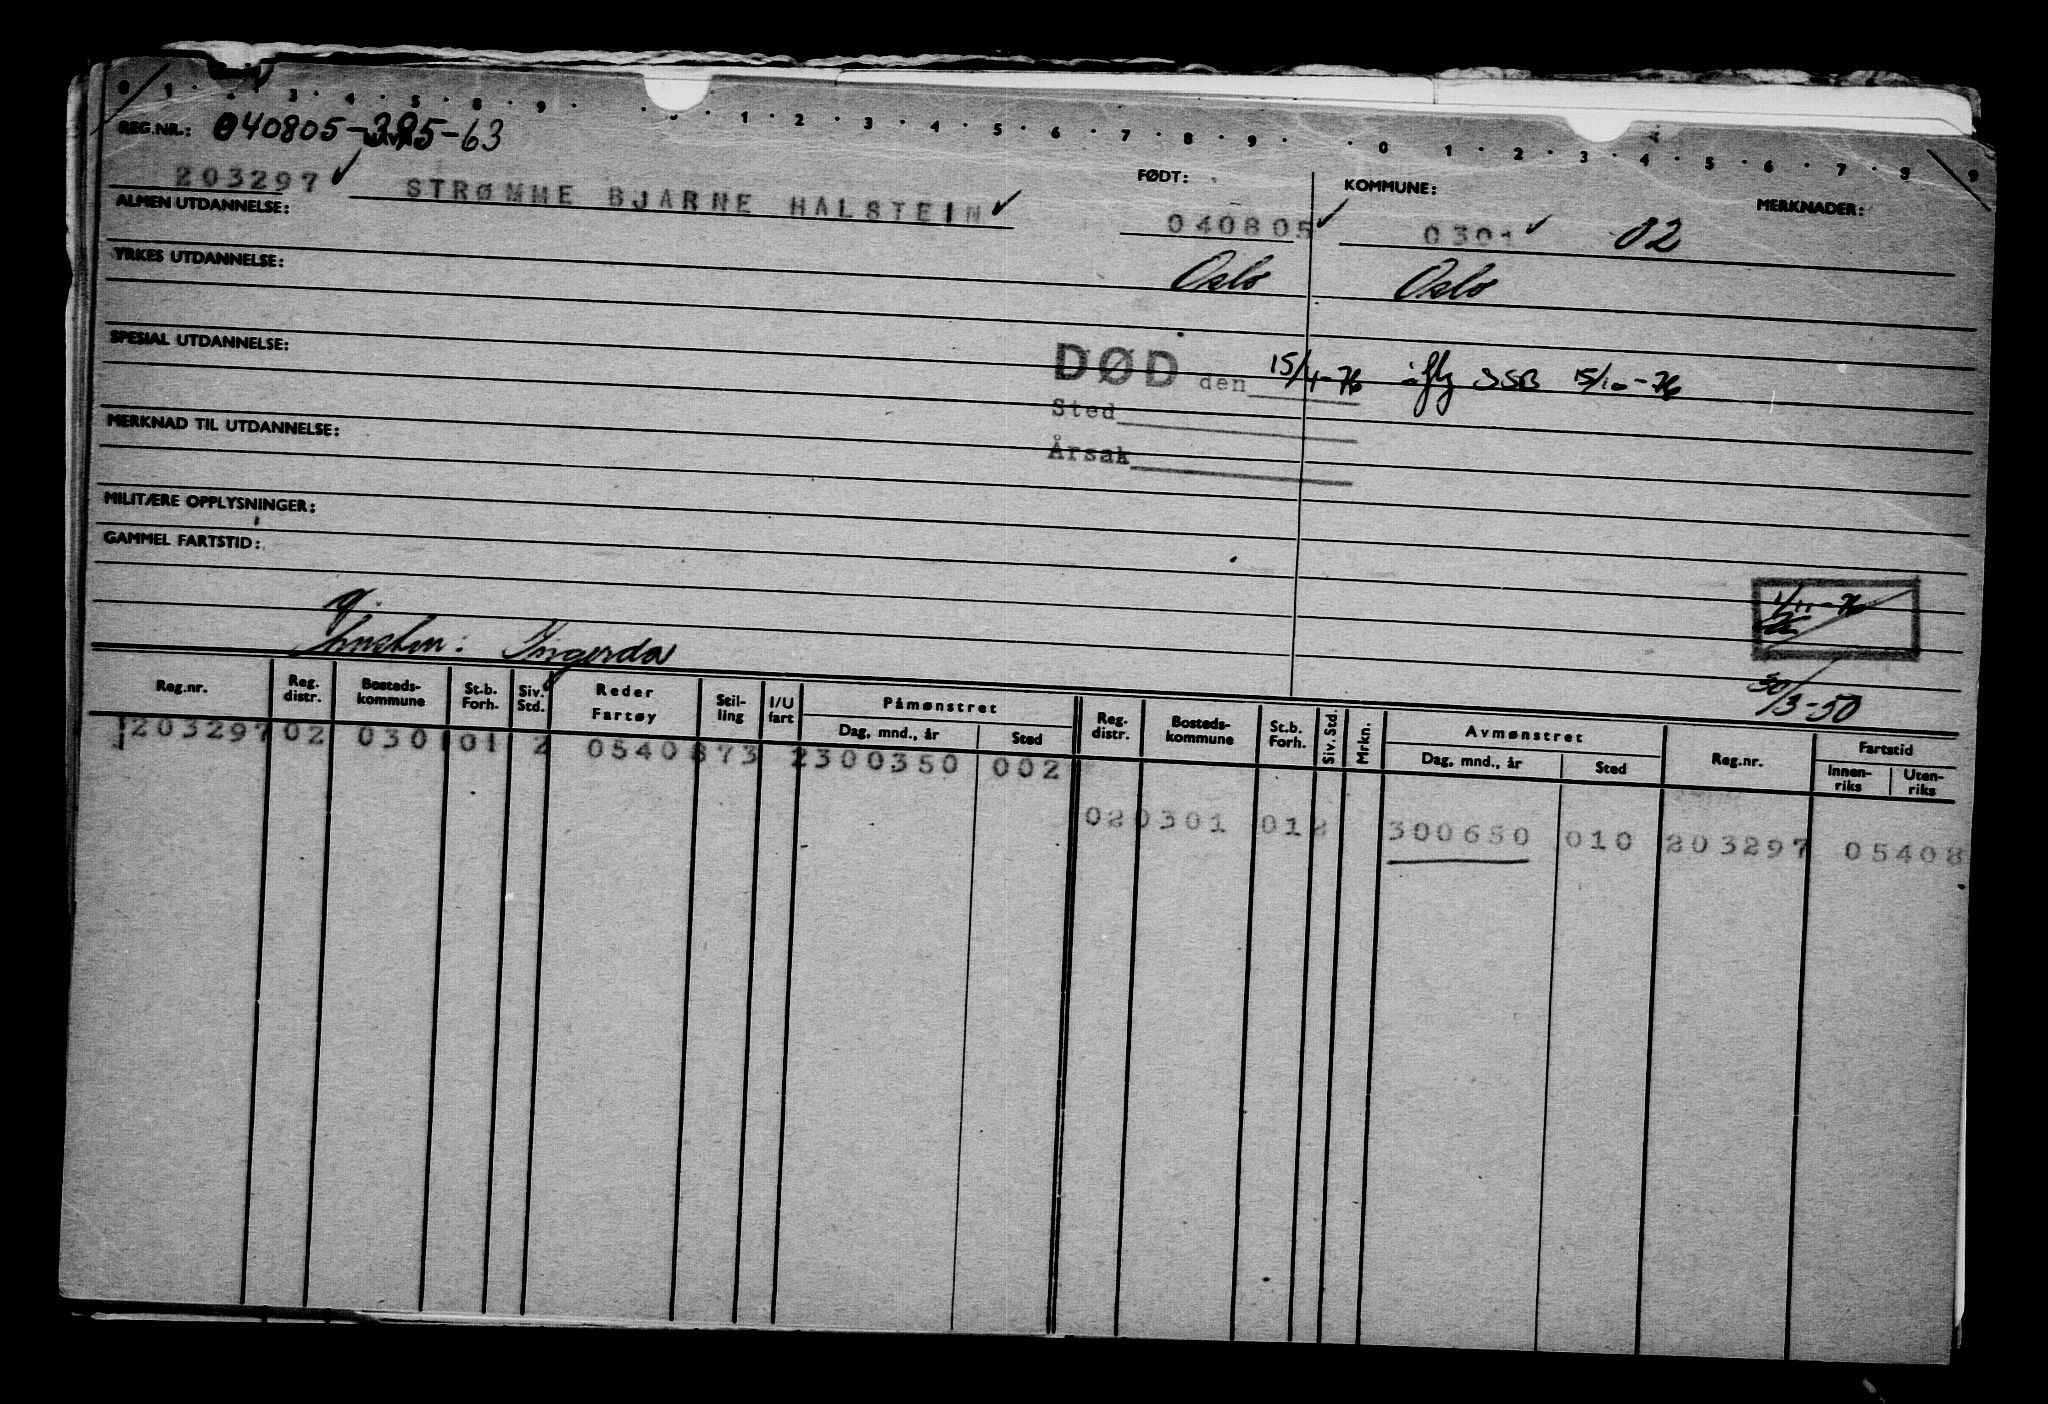 0 1 · 2 · 3 · 4 · 5 · 8 · 9 · · 0 · 1 · 2 · 3 · 4 · 5 · 6 · 7 · 8 · 9 · · 0 · 1 · 2 · 3 · 4 · 5 · 6 · 7 · 8 · 9
REG.NR.: 040805-395-63
203297 ✓ STRØMME BJARNE HALSTEIN ✓
FØDT: 040805 ✓
KOMMUNE: 0301 ✓ 02
MERKNADER:
ALMEN UTDANNELSE:
Oslo Oslo
YRKES UTDANNELSE:
SPESIAL UTDANNELSE:
DØD den 15/4-76 SSB 15/10-76
Sted
Årsak
MERKNAD TIL UTDANNELSE:
MILITÆRE OPPLYSNINGER:
GAMMEL FARTSTID:
1/11-76
Hustru: Ingerda
30/3-50
Reg.nr. Reg. distr. Bosteds-kommune St.b. Forh. Siv. Std. Reder Fartøy Stil-ling I/U fart Påmønstret Dag, mnd., år Sted Reg. distr. Bosteds-kommune St.b. Forh. Siv. Std. Mrkn. Avmønstret Dag, mnd., år Sted Reg.nr. Fartstid Innen-riks Uten-riks
203297 02 0301 01 2 0540873 2300350 002
02 0301 012 300650 010 203297 05408